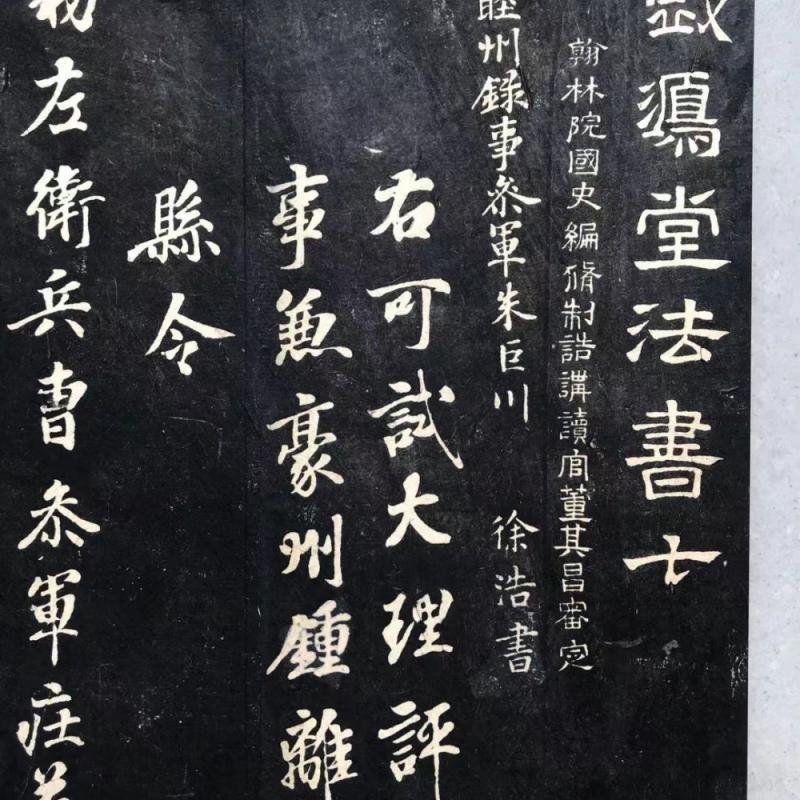 鴻堂法書七
翰林院國史編脩制誥講讀官董其昌審定
睦州錄事叅軍朱巨川 徐浩書
右可試大理評
事兼豪州鍾離
縣令
左衛兵曹叅軍莊